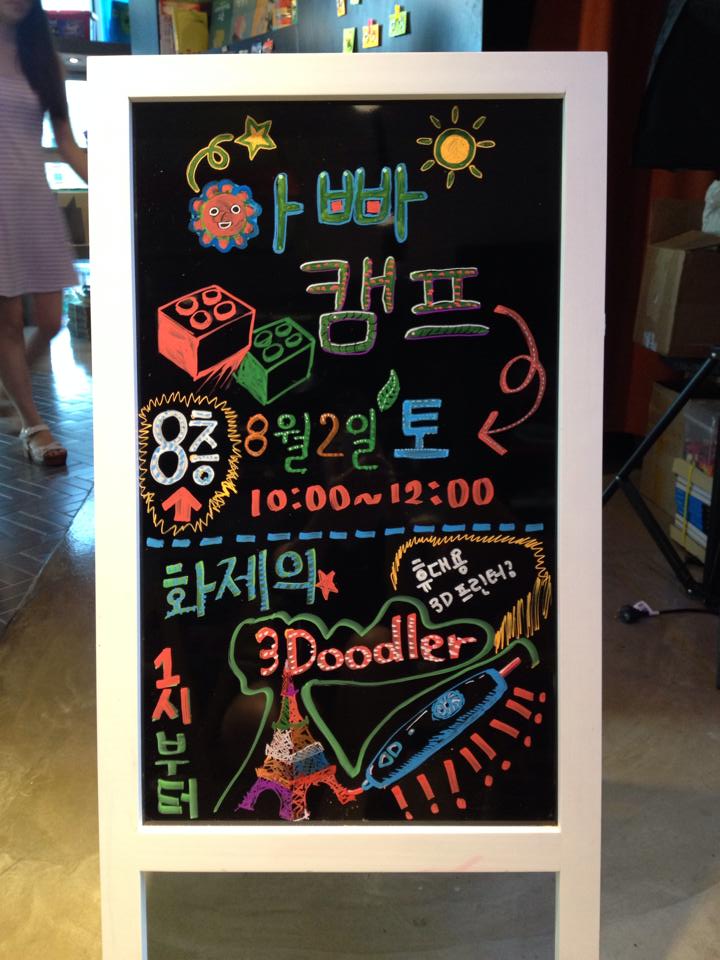 아빠
캠프
8층
8월 2일 토
10:00~12:00
화제의
휴대용
3D 프린터?
3Doodler
1시부터